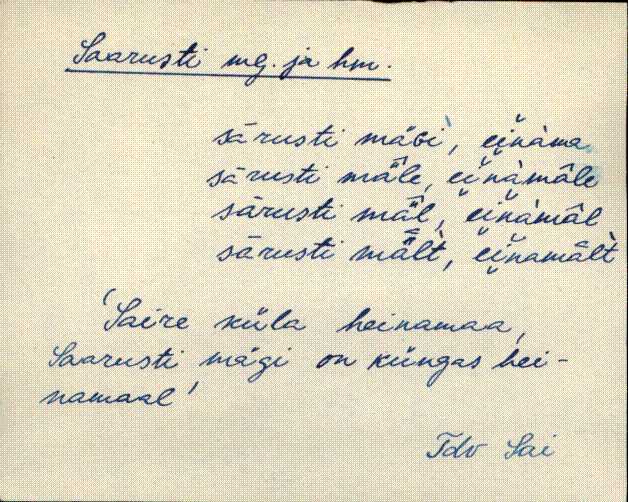 Saarusti mg. ja hm.
sārusti mäGi, ei̯nàma
sārusti mä̂le, ei̯nàmâle
sārusti mä̂l, ei̯nàmâl
sārusti mä̂lt, ei̯namâlt
'Saire küla heinamaa,
Saarusti mägi on küngas hei-
namaal'
Tdv Sai